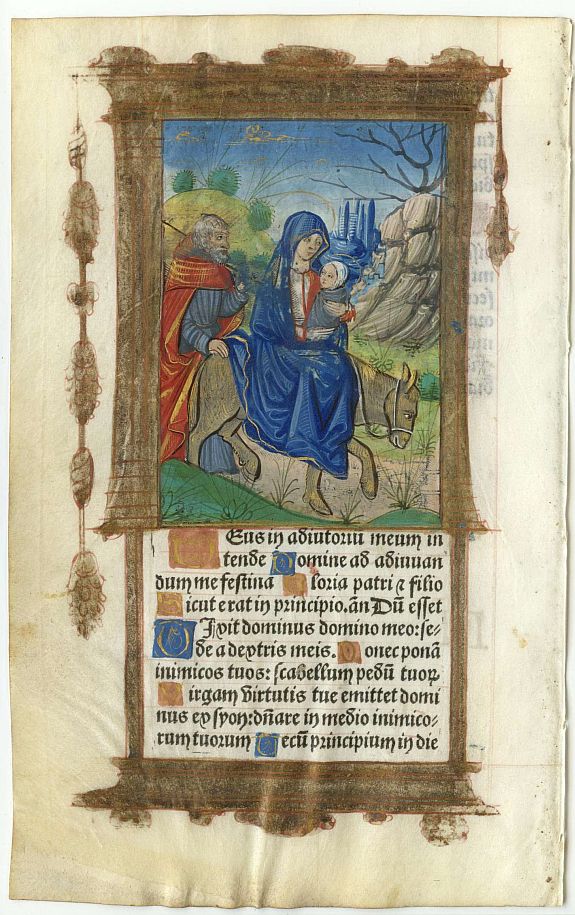 Eus in adiutoriū meum in
tende Domine ad adiuuan
dum me festina Gloria patri ⁊ filio
Sicut erat in principio. an̄ Dū esset
Dixit dominus domino meo: se-
de a dextris meis. Donec ponā
inimicos tuos: scabellum pedū tuoꝝ
Virgam virtutis tue emittet domi
nus ex syon: dn̄are in medio inimico-
rum tuorum Tecū principium in die